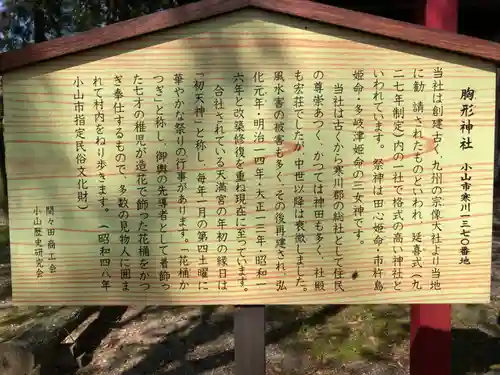 胸形神社 小山市寒川一三七〇番地
当社は創建古く、九州の宗像大社より当地
に勧請されたものといわれ、延喜式(九
二七年制定)内の一社で格式の高い神社と
いわれています。祭神は田心姫命・市杵島
姫命・多岐津姫命の三女神です。
当社は古くから寒川郡の総社として住民
の尊崇あつく、かつては神田も多く、社殿
も宏荘でしたが、中世以降は衰微しました。
風水害の被害も多く、その後再建され、弘
化元年・明治一四年・大正一三年・昭和一
六年と改築修復を重ね現在に至っています。
合社されている天満宮の年初の縁日は
「初天神」と称し、毎年一月の第四土曜に
華やかな祭りの行事があります。「花桶か
つぎ」と称し、御輿の先導者として着飾っ
た七才の稚児が造花で飾った花桶をかつ
ぎ奉仕するもので、多数の見物人に囲ま
れて村内をねり歩きます。(昭和四八年
小山市指定民俗文化財)
間々田商工会
小山歴史研究会